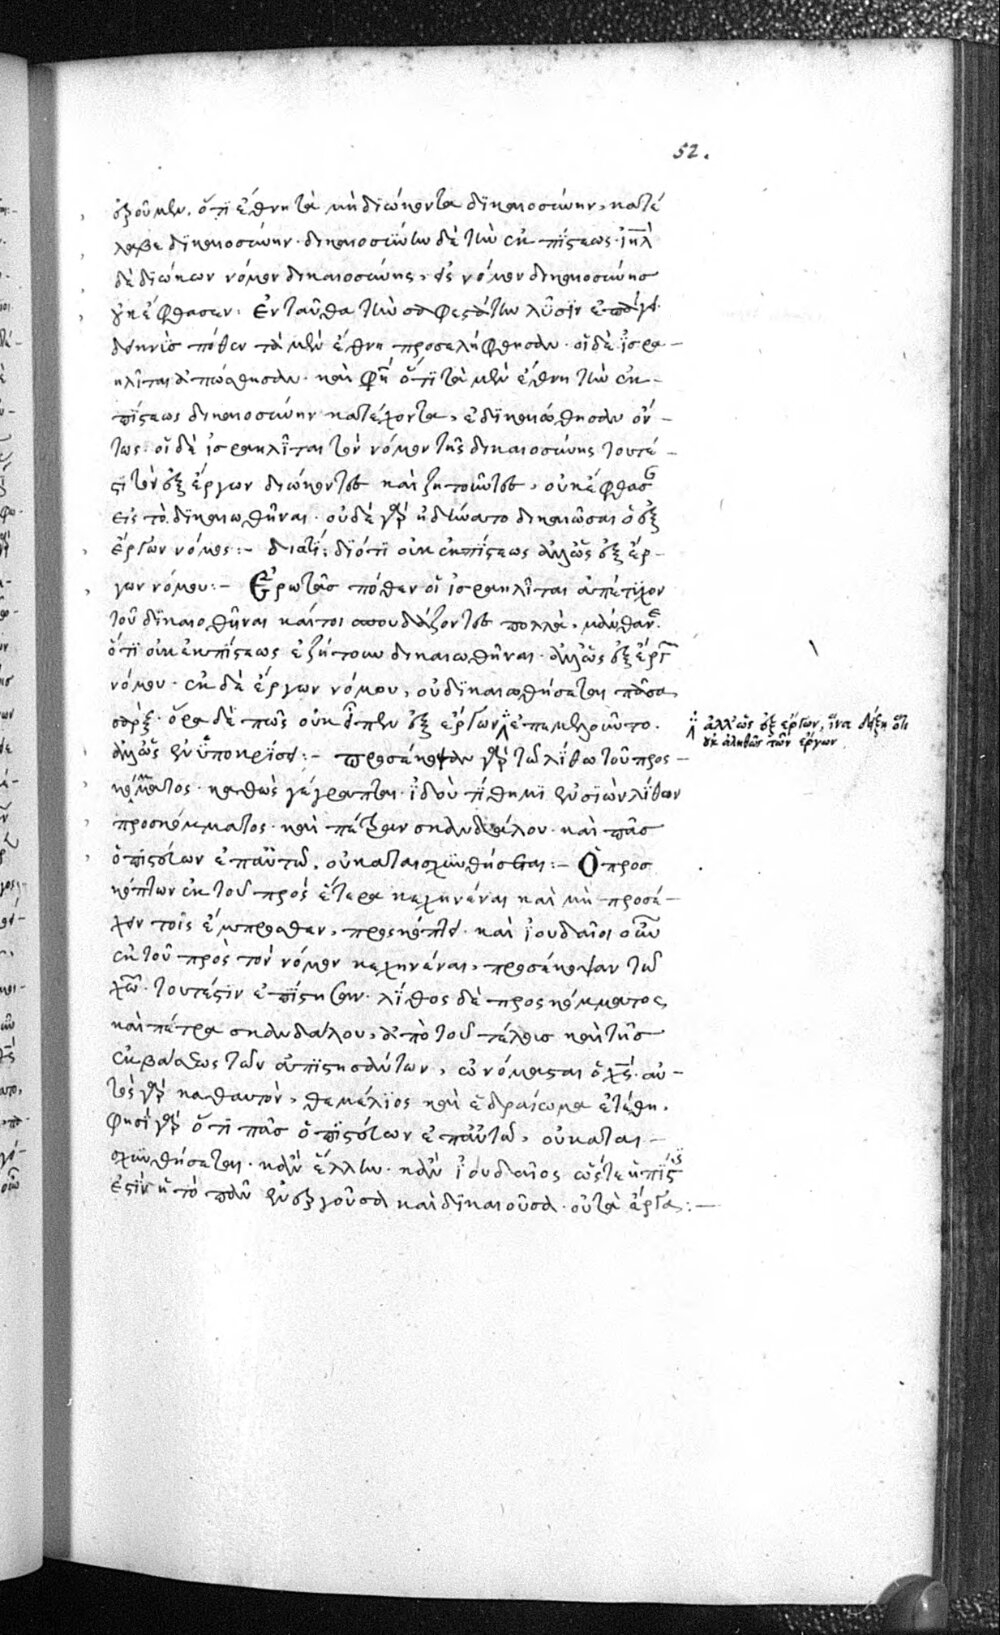 52.
ἐροῦμεν. ὅτι ἔθνη τὰ μὴ διώκοντα δικαιοσύνην, κατέ
λαβε δικαιοσύνην. δικαιοσύνην δὲ τὴν ἐκ πίστεως. ἰηλ
δὲ διώκων νόμον δικαιοσύνης, εἰς νόμον δικαιοσύνης
οὐκ ἔφθασεν. Ἐνταῦθα τὴν σαφεστάτην λύσιν ἐπάγει.
δεικνὺς πόθεν τὰ μὲν ἔθνη προσελήφθησαν. οἱ δὲ ἰσρα-
ηλῖται ἀπώσθησαν. καὶ φη ὅτι τὰ μὲν ἔθνη τὴν ἐκ-
πίστεως δικαιοσύνην κατέχοντα, ἐδικαιώθησαν ὄν-
τως. οἱ δὲ ἰσραηλῖται τὸν νόμον τῆς δικαιοσύνης τουτέ-
στι τὸν ἐξ ἔργων διώκοντες καὶ ζητοῦντες, οὐκ ἔφθασ
εἰς τὸ δικαιωθῆναι. οὐδὲ γὰρ ἠδύνατο δικαιῶσαι ὁ ἐξ
ἔργων νόμος:- διατί; διότι οὐκ ἐκ πίστεως ἀλλ' ὡς ἐξ ἔρ-
γων νόμου:- Ἐρωτᾶς πόθεν οἱ ἰσραηλῖται ἀπέτυχον
τοῦ δικαιωθῆναι καίτοι σπουδάζοντες πολλὰ, μάνθανε.
ὅτι οὐκ ἐκ πίστεως ἐζήτουν δικαιωθῆναι. ἀλλ' ὡς ἐξ ἔργ
νόμου. ἐκ δὲ ἔργων νόμου, οὐ δικαιωθήσεται πᾶσα
σάρξ. ὅρα δὲ πῶς οὐκ εἶπεν ἐξ ἔργων ἐπεπληροῦντο.
ἀλλ' ὡς ἐν ὑποκρίσει:- προσέκοψαν γὰρ τῷ λίθῳ τοῦ προς-
κόμματος. καθὼς γέγραπται. ἰδοὺ τίθημι ἐν σιὼν λίθον
προσκόμματος. καὶ πέτραν σκανδάλου. καὶ πᾶς
ὁ πιστεύων ἐπ' αὐτῷ, οὐ καταισχυνθήσεται:- Ὁ προσ
κόπτων ἐκ τοῦ πρὸς ἕτερα κεχηνέναι καὶ μὴ προσέ-
χειν τοῖς ἔμπροσθεν, προσκόπτει. καὶ ἰουδαῖοι οὖν
ἐκ τοῦ πρὸς τὸν νόμον κεχηνέναι, προσέκοψαν τῷ
χω. τουτέστιν ἠπίστησαν. λίθος δὲ προς κόμματος,
καὶ πέτρα σκανδάλου, ἀπὸ τοῦ τέλους καὶ τῆς
ἐκβάσεως τῶν ἀπιστησάντων, ὠνόμασται ὁ χς. αὐ-
τὸς γὰρ καθαυτὸν, θεμέλιος καὶ ἑδραίωμα ἐτέθη.
φησὶ γὰρ ὅτι πᾶς ὁ πιστεύων ἐπ' αὐτῷ, οὐ καται-
σχυνθήσεται. κἂν ἕλλην. κἂν ἰουδαῖος ὥστε ἡ πίστις
ἐστὶν ἡ τὸ πᾶν ἐνεργοῦσα καὶ δικαιοῦσα. οὐ τὰ ἔργα:-
ἀλλ' ὡς ἐξ ἔργων, ἵνα δείξῃ ὅτι
οὐκ ἀληθῶς τῶν ἔργων